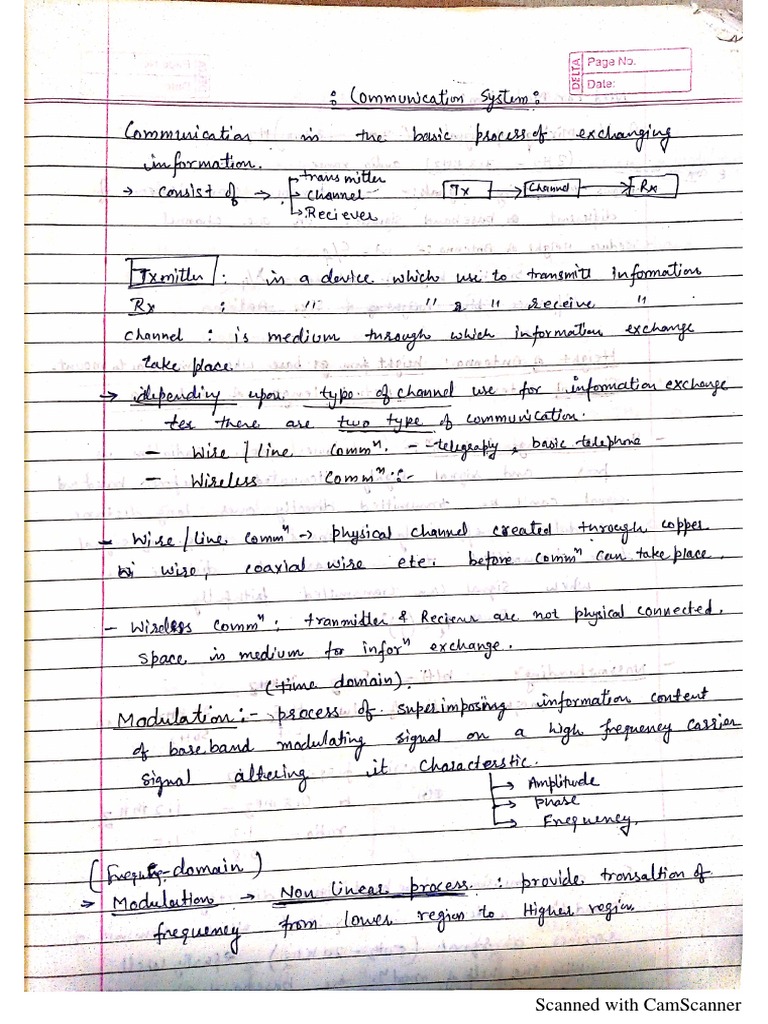 DELTA Page No.
Date:
: Communication System :
Communication is the basic process of exchanging
information.
→ consist of → → transmitter
→ Channel
→ Reciever
Tx → Channel → Rx
Txmitter : is a device which use to transmitt information
Rx : " " & " receive "
Channel : is medium through which information exchange
take place.
→ depending upon type of channel use for information exchange
there are two type of communication.
- Wire / line Commⁿ. - -telegraphy, basic telephone
- Wireless Commⁿ :-
- Wire / line commⁿ → physical channel created through copper
wire, coaxial wire etc. before commⁿ can take place.
- Wireless commⁿ : tranmidter & Reciever are not physical connected.
space is medium for inforⁿ exchange.
(time domain).
Modulation :- process of superimposing information content
of baseband modulating signal on a high frequency carrier
signal altering it characterstic.
→ Amplitude
→ Phase
→ Frequency.
(Frequency-domain)
→ Modulation → Non linear process : provide transaltion of
frequency from lower region to Higher region
Scanned with CamScanner